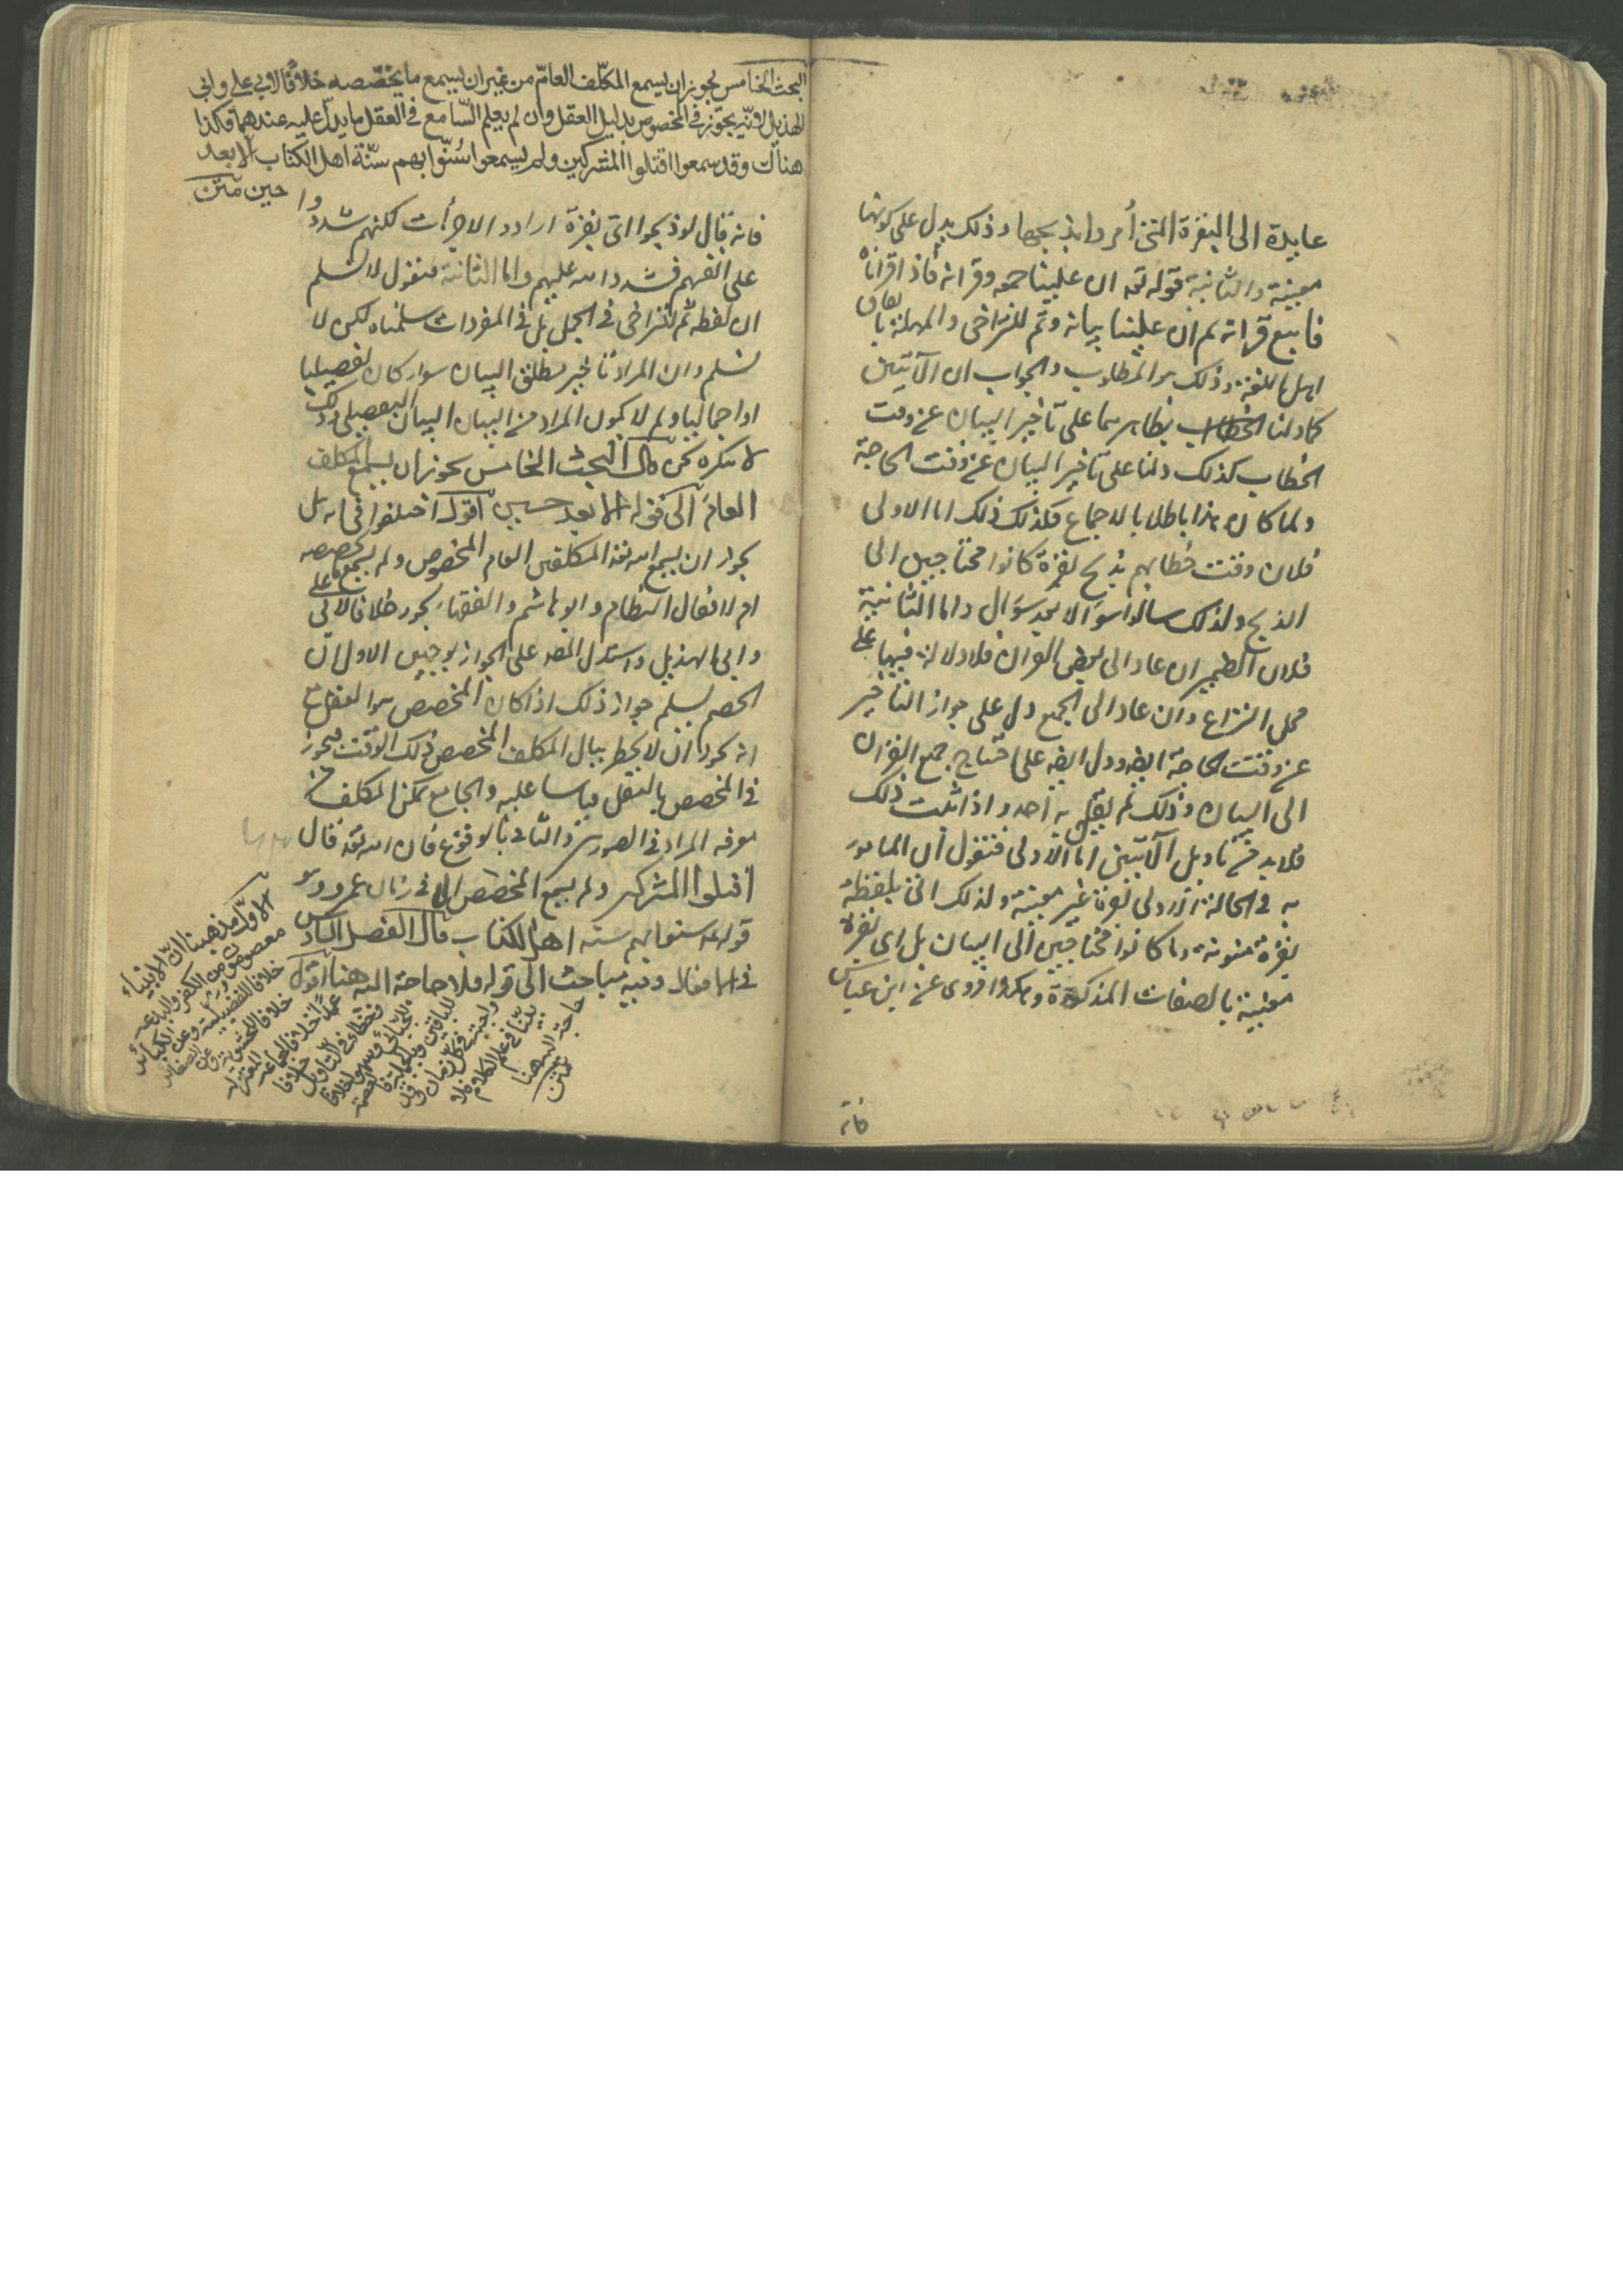 عايدة الى البقرة التى أمروا بذبحها وذلك يدل على كونها
معينة والثانية قوله تعه ان علينا جمعه وقرانه فاذا قراناه
فاتبع قرانه ثم ان علينا بيانه وثم للتراخى والمهلة باتفاق
اهل اللغة وذلك هو المطلوب والجواب ان الآيتين
كما دلتا بظاهرهما على تأخير البيان عن وقت
الخطاب كذلك دلتا على تأخير البيان عن وقت الحاجة
ولما كان هذا باطلا بالاجماع فكذلك ذلك اما الاولى
فلان وقت خطابهم بذبح بقرة كانوا محتاجين الى
الذبح ولذلك سالوا سؤالا بعد سؤال واما الثانية
فلان الضمير ان عاد الى بعض القران فلا دلالة فيها على
محل النزاع وان عاد الى الجميع دل على جواز التأخير
عن وقت الحاجة ايضه ودل ايضه على احتياج جميع القران
الى البيان وذلك لم يقل به أحد واذا ثبت ذلك
فلا بد من تاويل الآيتين اما الاولى فنقول ان المامور
به فى الحالة الاولى بقرة غير معينة ولذلك اتى بلفظة
بقرة منونة وما كانوا محتاجين الى البيان بل اى بقرة
معينة بالصفات المذكورة وهكذا روى عن ابن عباس
فانه
البحث الخامس يجوز ان يسمع المكلّف العامّ من غير ان يسمع ما يخصّصه خلافًا لابى على وابى
الهذيل لانّه يجوز فى المخصوص بدليل العقل وان لم يعلم السّامع فى العقل ما يدلّ عليه عندهما فكذا
هناك وقد سمعوا اقتلوا المشركين ولم يسمعوا سُنّوا بهم سنّة اهل الكتاب الّا بعد
حين متن
فانه قال لو ذبحوا اى بقرة ارادوا لاجزأت لكنهم شددوا
على انفسهم فشدد الله عليهم واما الثانية فنقول لا نسلم
ان لفظه ثم للتراخى فى الجمل بل فى المفردات سلمناه لكن لا
نسلم ان المراد تاخير مطلق البيان سواء كان تفصيليا
او اجماليا ولم لا يكون المراد من البيان البيان التفصيلى وذلك
لا ننكره نحن قال البحث الخامس يجوز ان يسمع المكلف
العام الى قوله الا بعد حين اقول اختلفوا فى انه هل
يجوز ان يسمع الله تعه المكلفين العام المخصوص ولم يسمع مخصصه
ام لا فقال النظام وابو هاشم والفقهاء يجوز خلافا لابى على
وابى الهذيل واستدل المصه على الجواز بوجهين الاول ان
الخصم يسلم جواز ذلك اذا كان المخصص هو العقل مع
انه يجوز ان لا يخطر ببال المكلف المخصص ذلك الوقت فيجوز
فى المخصص بالنقل قياسا عليه والجامع تمكن المكلف من
معرفة المراد فى الصورتين والثانى بالوقوع فان الله تعه قال
اقتلوا المشركين ولم يسمع المخصص الا فى زمان عمر وهو
قوله عه سنوا بهم سنة اهل الكتاب قال الفصل السادس
فى الافعال وفيه مباحث الى قوله فلا حاجة اليه هنا اقول
الاوّل مذهبنا انّ الانبياء
معصومون من الكفر والبدعة
خلافا للفضيلية وعن الكبائر
خلافا للحشوية وعن الصغائر
عمدًا خلافا لجماعة المعتزلة
وخطاء فى التّاويل خلافا
للجبّائى وسهوا خلافًا
للباقين وبالجملة فالعصمة
واجبة فى كلّ زمان وقد
بيّنّا فى علم الكلام فلا
حاجة اليه هنا
متن